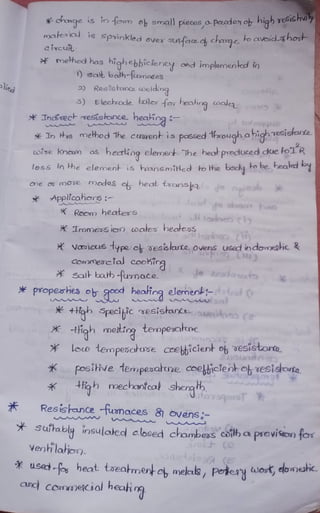 * charge is in form of small pieces, a powder of high resistivity
material is sprinkled over surface of charge to avoid short
circuit.
* method has high efficiency and implemented in
1) salt bath-furnaces
2) Resistance welding
3) Electrode boiler for heating water
* Indirect resistance heating :-
* In this method The current is passed through a high resistance
wire known as heating element. The heat produced due to I²R
loss in the element is transmitted to the body to be heated by
one or more modes of heat transfer
* Applications :-
* Room heaters
* Immersion water heaters
* various type of resistance ovens used in domestic &
commercial cooking
* salt bath furnace.
* properties of good heating element:-
* High specific resistance
* High melting temperature
* Low temperature coefficient of resistance
* positive temperature coefficient of resistance
* High mechanical strength
* Resistance furnaces or ovens:-
* suitably insulated closed chambers with a provision for
ventilation.
* used for heat treatment of metals, potery work, domestic
and commercial heating